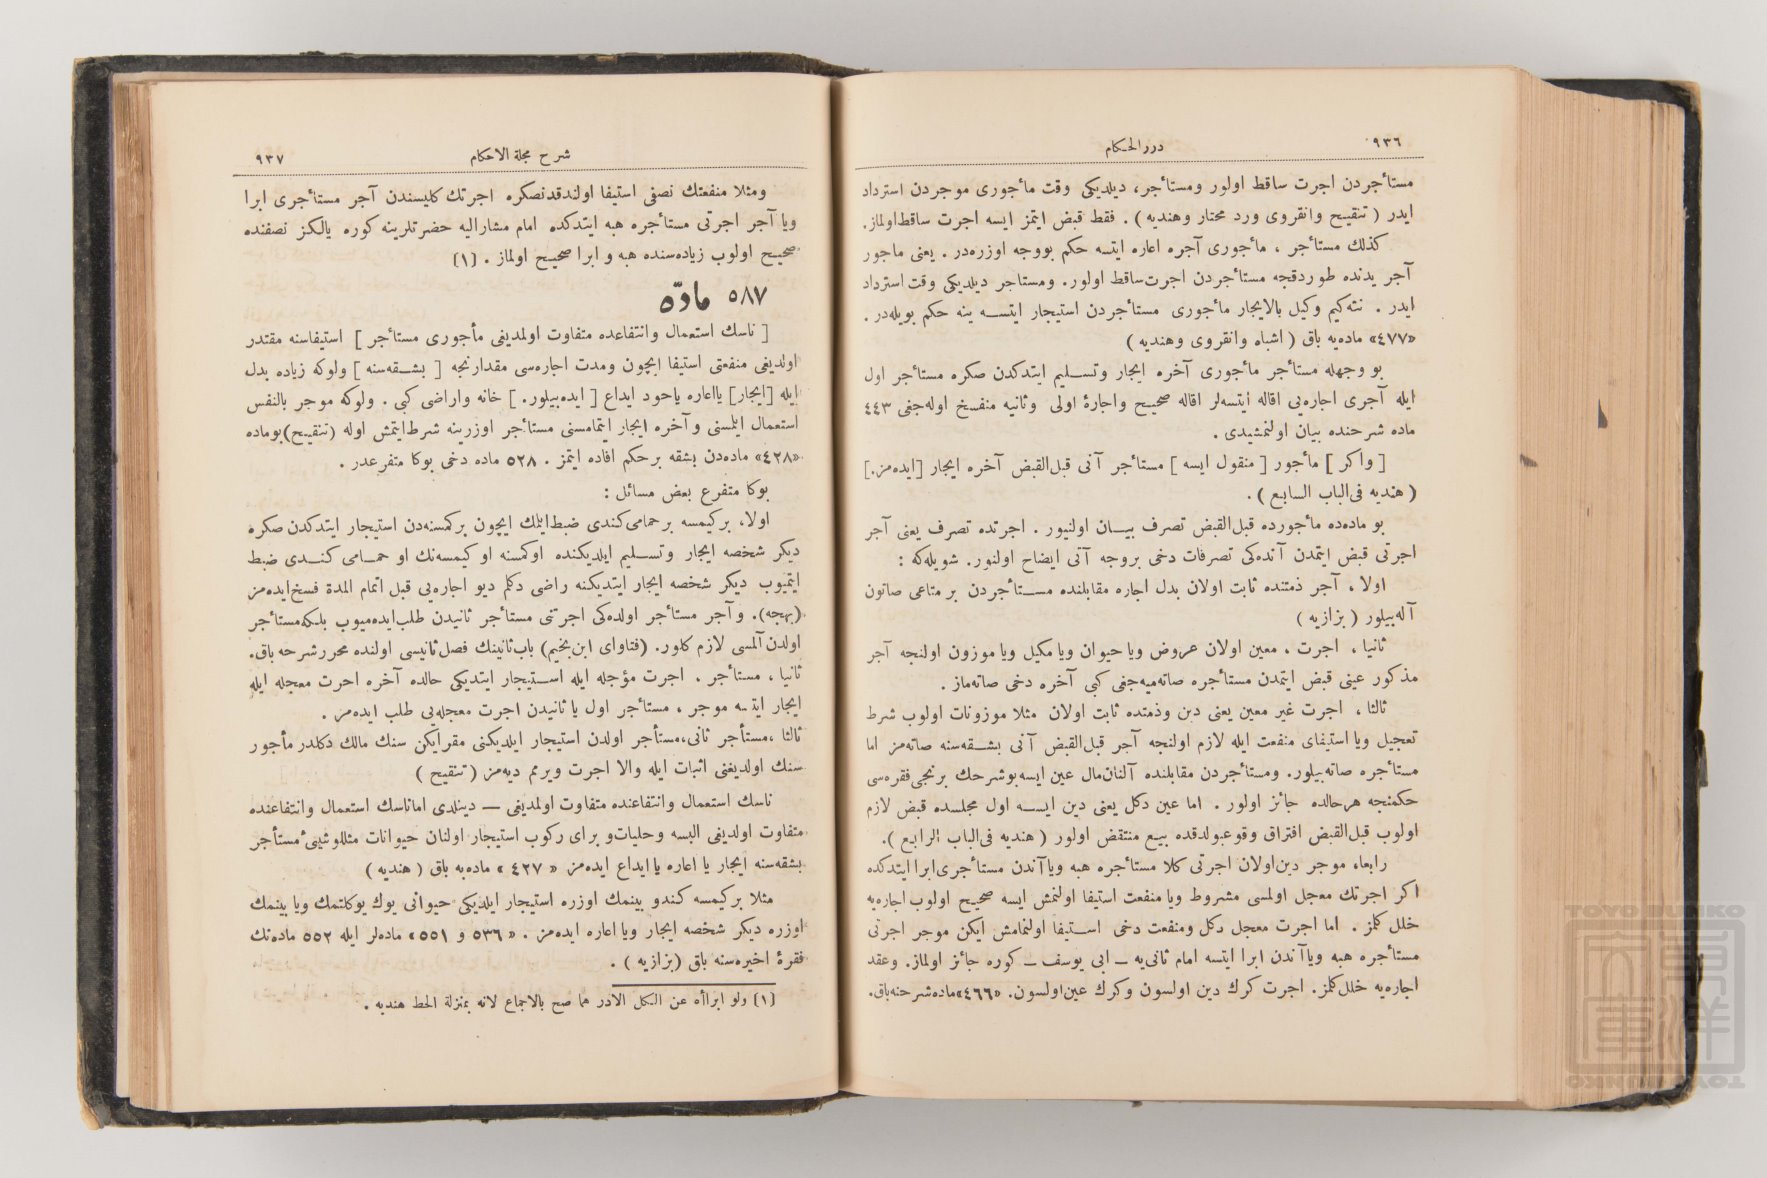 ٩٣٦
دررالحكام
مستأجردن اجرت ساقط اولور ومستأجر، ديلديكى وقت مأجورى موجردن استرداد
ايدر ( تنقيح وانقروى ورد محتار وهنديه ) . فقط قبض ايتمز ايسه اجرت ساقط اولماز.
كذلك مستأجر ، مأجورى آجره اعاره ايتسه حكم بووجه اوزره در . يعنى ماجور
آجر يدنده طوردقجه مستأجردن اجرت ساقط اولور. ومستاجر ديلديكى وقت استرداد
ايدر . نته كيم وكيل بالايجار مأجورى مستأجردن استيجار ايتسه ينه حكم بويله در .
«٤٧٧» ماده يه باق ( اشباه وانقروى وهنديه )
بو وجهله مستأجر مأجورى آخره ايجار وتسليم ايتدكدن صكره مستأجر اول
ايله آجرى اجاره يى اقاله ايتسه لر اقاله صحيح واجارۀ اولى وثانيه منفسخ اوله جغى ٤٤٣
ماده شرحنده بيان اولنمشيدى .
[ واكر ] مأجور [ منقول ايسه ] مستأجر آنى قبل القبض آخره ايجار [ايده مز.]
( هنديه فى الباب السابع ) .
بو ماده ده مأجورده قبل القبض تصرف بيان اولنيور . اجرتده تصرف يعنى آجر
اجرتى قبض ايتمدن آنده كى تصرفات دخى بروجه آتى ايضاح اولنور. شويله كه :
اولا ، آجر ذمتنده ثابت اولان بدل اجاره مقابلنده مستأجردن بر متاعى صاتون
آله بيلور ( بزازيه )
ثانيا ، اجرت ، معين اولان عروض ويا حيوان ويا مكيل ويا موزون اولنجه آجر
مذكور عينى قبض ايتمدن مستأجره صاته ميه جغى كبى آخره دخى صاته ماز .
ثالثا ، اجرت غير معين يعنى دين وذمتده ثابت اولان مثلا موزونات اولوب شرط
تعجيل ويا استيفاى منفعت ايله لازم اولنجه آجر قبل القبض آنى بشقه سنه صاته مز اما
مستأجره صاته بيلور. ومستأجردن مقابلنده آلنان مال عين ايسه بوشرحك برنجى فقره سى
حكمنجه هر حالده جائز اولور . اما عين دكل يعنى دين ايسه اول مجلسده قبض لازم
اولوب قبل القبض افتراق وقوعبولدقده بيع منتقض اولور ( هنديه فى الباب الرابع ).
رابعا، موجر دين اولان اجرتى كلا مستأجره هبه وياآندن مستأجرى ابرا ايتدكده
اكر اجرتك معجل اولمسى مشروط ويا منفعت استيفا اولنمش ايسه صحيح اولوب اجاره يه
خلل كلمز . اما اجرت معجل دكل ومنفعت دخى استيفا اولنمامش ايكن موجر اجرتى
مستأجره هبه وياآندن ابرا ايتسه امام ثانى يه ــ ابى يوسف ــ كوره جائز اولماز. وعقد
اجاره يه خلل كلمز. اجرت كرك دين اولسون وكرك عين اولسون. «٤٦٦» ماده شرحنه باق.
شرح مجلة الاحكام
٩٣٧
ومثلا منفعتك نصفى استيفا اولندقدنصكره اجرتك كليسندن آجر مستأجرى ابرا
ويا آجر اجرتى مستأجره هبه ايتدكده امام مشاراليه حضرتلرينه كوره يالكز نصفنده
صحيح اولوب زياده سنده هبه و ابرا صحيح اولماز . [١]
٥٨٧ مادّه
[ ناسك استعمال وانتفاعده متفاوت اولمديغى مأجورى مستأجر ] استيفاسنه مقتدر
اولديغى منفعتى استيفا ايچون ومدت اجاره سى مقدارنجه [ بشقه سنه ] ولوكه زياده بدل
ايله [ايجار] يااعاره ياخود ايداع [ ايده بيلور. ] خانه واراضى كبى . ولوكه موجر بالنفس
استعمال ايلمسنى وآخره ايجار ايتمامسنى مستأجر اوزرينه شرط ايتمش اوله (تنقيح) بوماده
«٤٢٨» ماده دن بشقه بر حكم افاده ايتمز . ٥٢٨ ماده دخى بوكا متفرعدر .
بوكا متفرع بعض مسائل :
اولا، بركيمسه بر حمامى كندى ضبط ايتمك ايچون بر كمسنه دن استيجار ايتدكدن صكره
ديكر شخصه ايجار وتسليم ايلديكنده اوكمسنه او كيمسه نك او حمامى كندى ضبط
ايتميوب ديكر شخصه ايجار ايتديكنه راضى دكلم ديو اجاره يى قبل اتمام المدة فسخ ايده مز
(بهجه). و آجر مستأجر اولده كى اجرتنى مستأجر ثانيدن طلب ايده ميوب بلكه مستأجر
اولدن آلمسى لازم كلور. (فتاواى ابن نجيم) باب ثانينك فصل ثانيسى اولنده محرر شرحه باق.
ثانيا ، مستأجر . اجرت مؤجله ايله استيجار ايتديكى حالده آخره اجرت معجله ايله
ايجار ايتسه موجر ، مستأجر اول يا ثانيدن اجرت معجله يى طلب ايده مز .
ثالثا ،مستأجر ثانى،مستأجر اولدن استيجار ايلديكنى مقر ايكن سنك مالك دكلدر مأجور
سنك اولديغنى اثبات ايله والا اجرت ويرمم ديه مز ( تنقيح )
ناسك استعمال وانتفاعنده متفاوت اولمديغى ــ دينلدى اماناسك استعمال وانتفاعنده
متفاوت اولديغى البسه وحليات و براى ركوب استيجار اولنان حيوانات مثللو شيئى مستأجر
بشقه سنه ايجار يا اعاره يا ايداع ايده مز « ٤٢٧ » ماده يه باق ( هنديه )
مثلا بركيمسه كندو بينمك اوزره استيجار ايلديكى حيوانى يوك يوكلتمك ويا بينمك
اوزره ديكر شخصه ايجار ويا اعاره ايده مز . « ٥٣٦ و ٥٥١» ماده لر ايله ٥٥٢ ماده نك
فقرۀ اخيره سنه باق (بزازيه ) .
[١] ولو ابرأه عن الكل الا در هما صح بالاجماع لانه بمنزلة الحط هنديه .
TOYO BUNKO
東洋
文庫
TOYO BUNKO